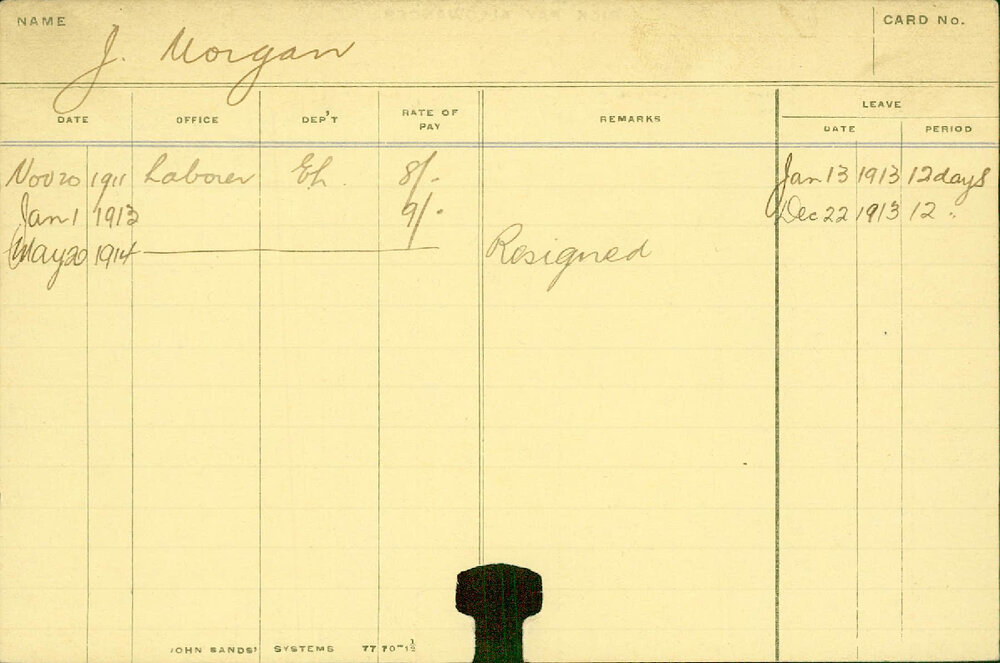 NAME
J. Morgan
CARD No.
DATE OFFICE DEP'T RATE OF PAY REMARKS LEAVE
DATE PERIOD
Nov 20 1911 Laborer 8/- Jan 13 1913 12 days
Jan 1 1913 9/- Dec 22 1913 12 "
May 20 1914 Resigned
JOHN SANDS' SYSTEMS 77 70-